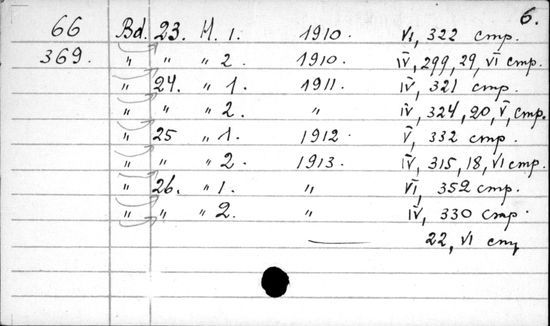 6.
66 Bd. 23. H. 1. 1910. VI, 322 стр.
369. " " " 2 1910. IV, 299, 29, VI стр.
" 24. " 1. 1911. IV, 321 стр.
" " " 2. " IV, 324, 20, V, стр.
" 25 " 1. 1912. V, 332 стр.
" " " 2. 1913. IV, 315, 18, VI стр.
" 26. " 1. " VI, 352 стр.
" " " 2. " IV, 330 стр.
22, VI стр